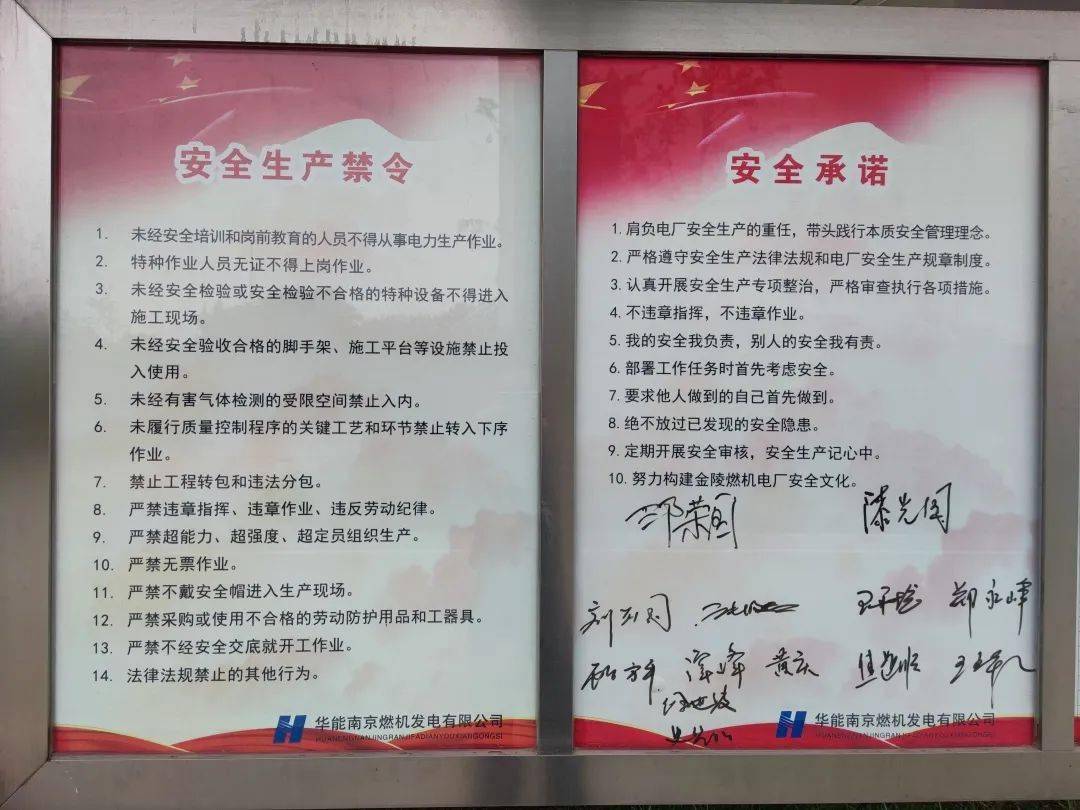 安全生产禁令
1. 未经安全培训和岗前教育的人员不得从事电力生产作业。
2. 特种作业人员无证不得上岗作业。
3. 未经安全检验或安全检验不合格的特种设备不得进入
施工现场。
4. 未经安全验收合格的脚手架、施工平台等设施禁止投
入使用。
5. 未经有害气体检测的受限空间禁止入内。
6. 未履行质量控制程序的关键工艺和环节禁止转入下序
作业。
7. 禁止工程转包和违法分包。
8. 严禁违章指挥、违章作业、违反劳动纪律。
9. 严禁超能力、超强度、超定员组织生产。
10. 严禁无票作业。
11. 严禁不戴安全帽进入生产现场。
12. 严禁采购或使用不合格的劳动防护用品和工器具。
13. 严禁不经安全交底就开工作业。
14. 法律法规禁止的其他行为。
华能南京燃机发电有限公司
HUANENGNANJINGRANJIFADIANYOUXIANGONGSI
安全承诺
1. 肩负电厂安全生产的重任，带头践行本质安全管理理念。
2. 严格遵守安全生产法律法规和电厂安全生产规章制度。
3. 认真开展安全生产专项整治，严格审查执行各项措施。
4. 不违章指挥，不违章作业。
5. 我的安全我负责，别人的安全我有责。
6. 部署工作任务时首先考虑安全。
7. 要求他人做到的自己首先做到。
8. 绝不放过已发现的安全隐患。
9. 定期开展安全审核，安全生产记心中。
10. 努力构建金陵燃机电厂安全文化。
郑永峰
黄庆
华能南京燃机发电有限公司
HUANENGNANJINGRANJIFADIANYOUXIANGONGSI